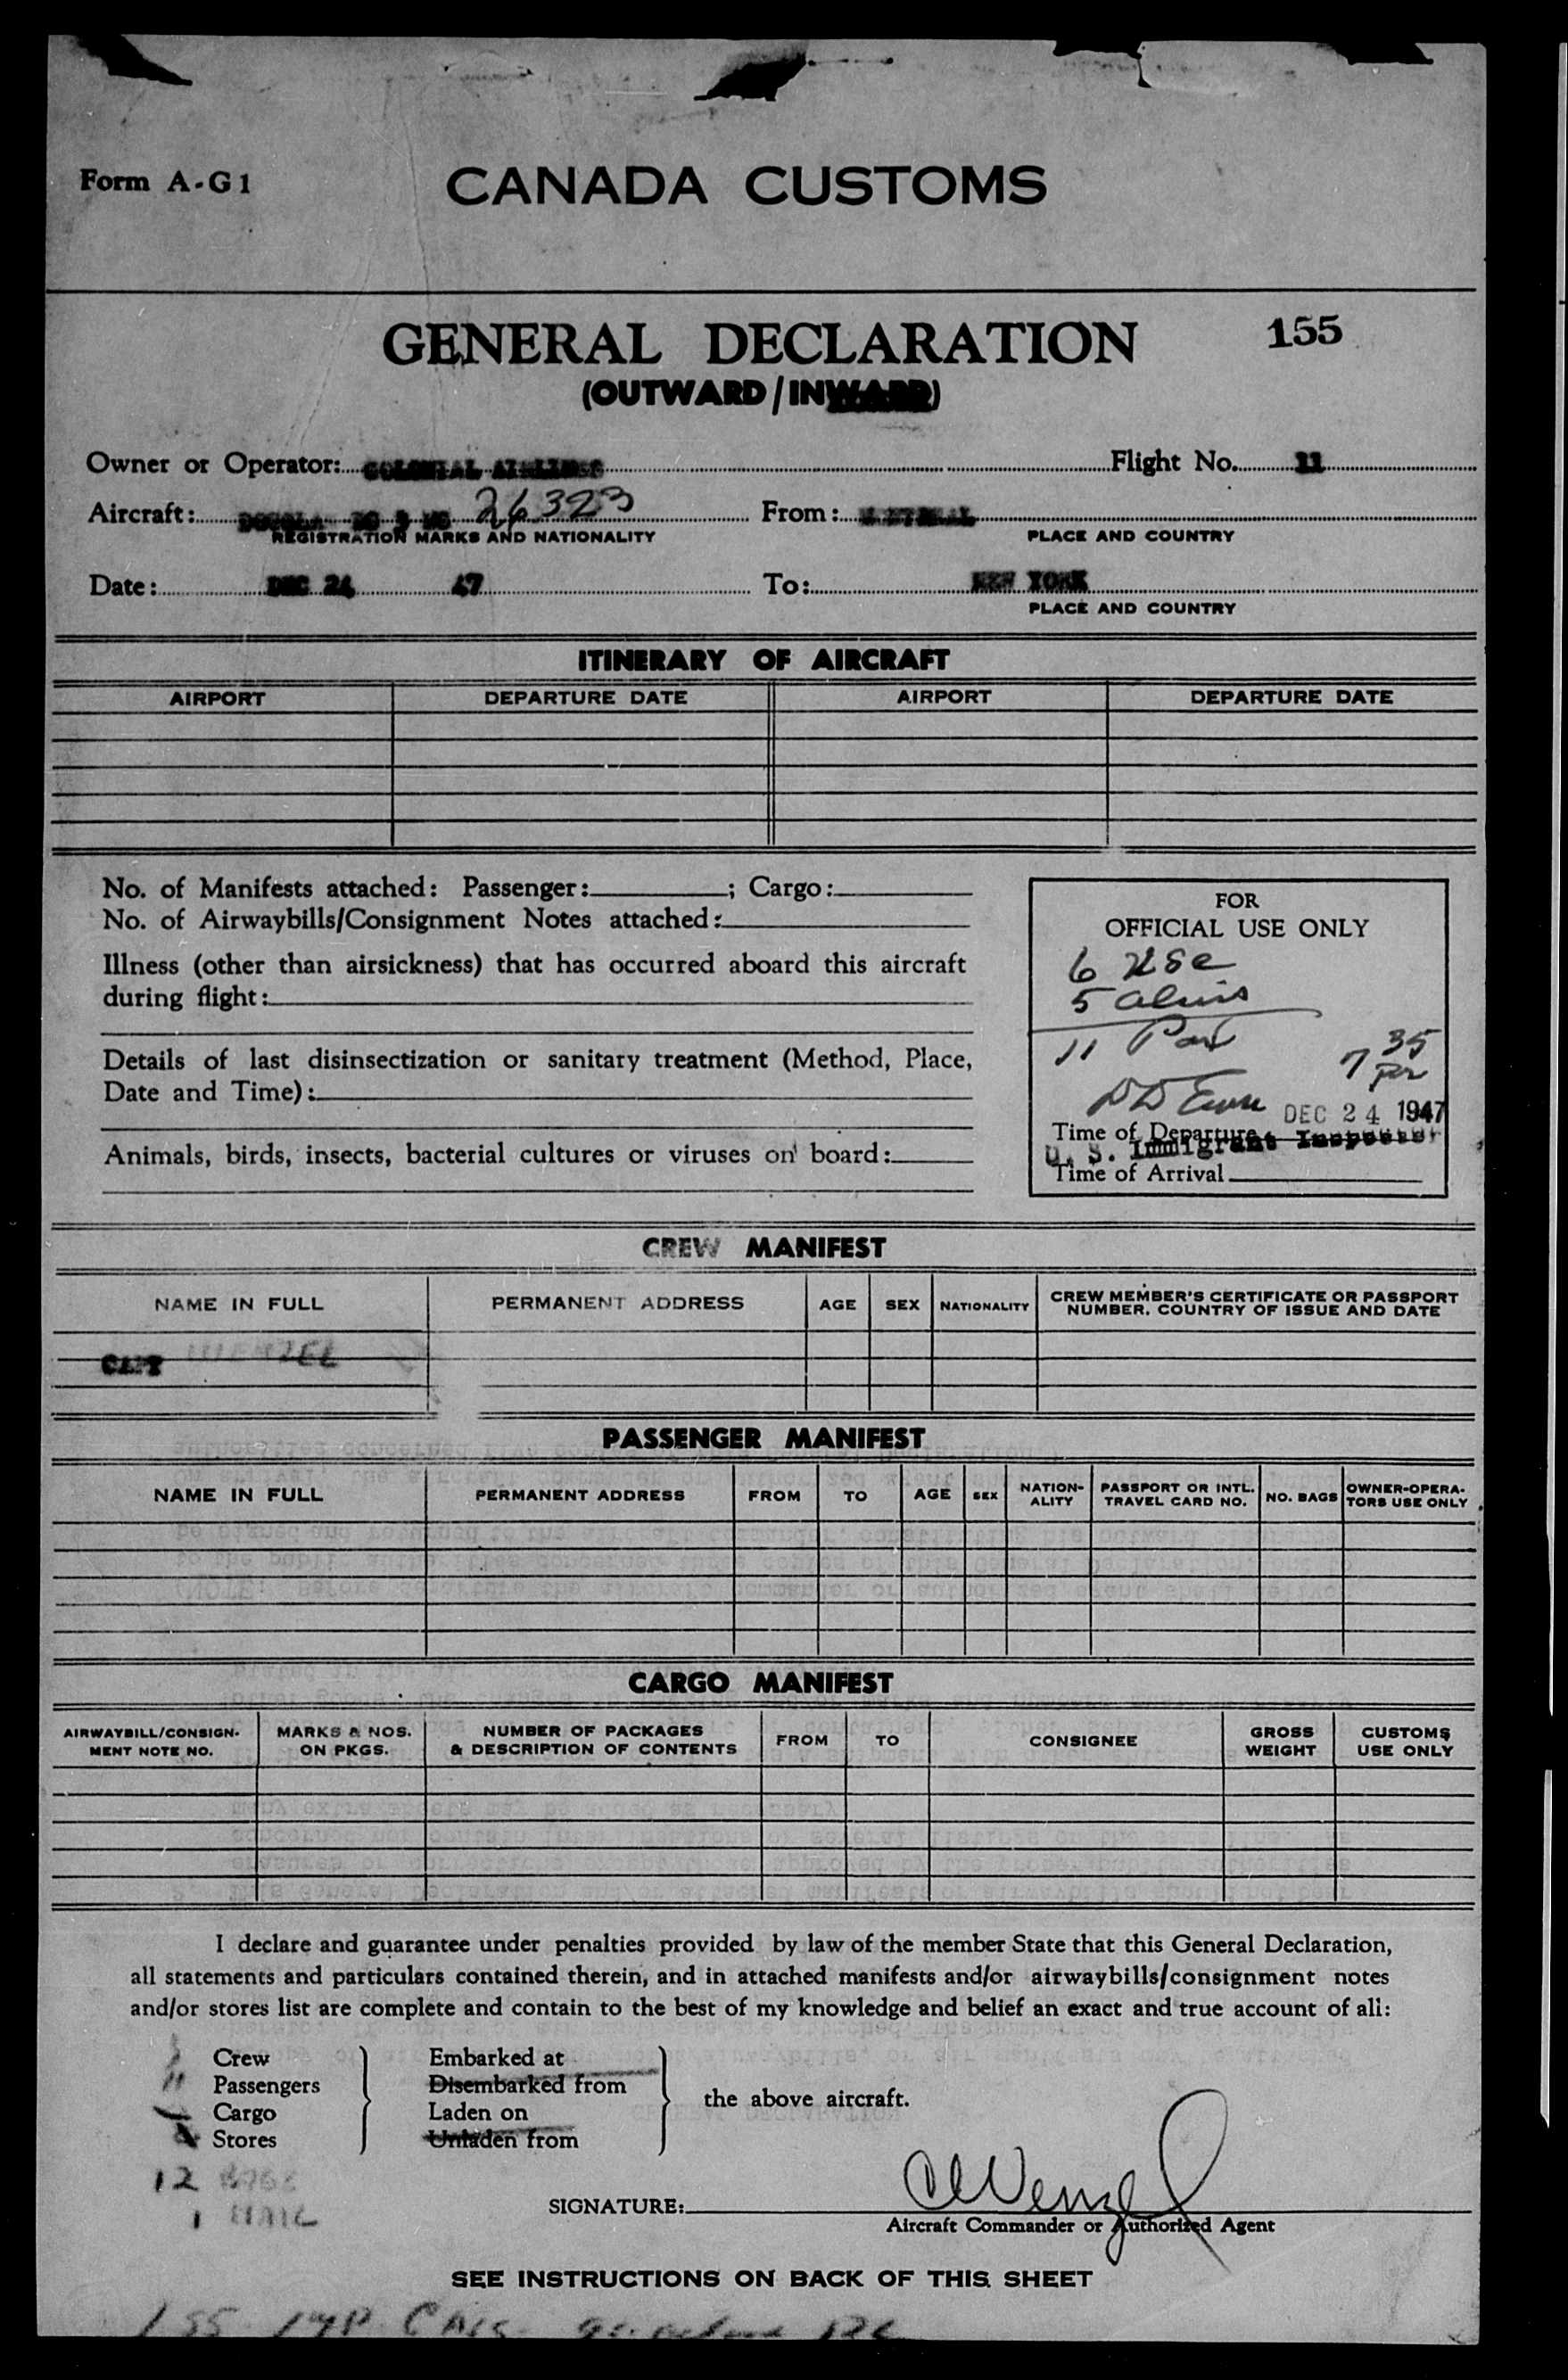 Form A-G1
CANADA CUSTOMS
GENERAL DECLARATION 155
(OUTWARD/INWARD)
Owner or Operator: COLONIAL AIRLINES Flight No. 11
Aircraft: DOUGLAS DC 3 NC 26323 From: MONTREAL
REGISTRATION MARKS AND NATIONALITY PLACE AND COUNTRY
Date: DEC 24 47 To: NEW YORK
PLACE AND COUNTRY
ITINERARY OF AIRCRAFT
AIRPORT DEPARTURE DATE AIRPORT DEPARTURE DATE
No. of Manifests attached: Passenger: ; Cargo:
No. of Airwaybills/Consignment Notes attached:
Illness (other than airsickness) that has occurred aboard this aircraft
during flight:
Details of last disinsectization or sanitary treatment (Method, Place,
Date and Time):
Animals, birds, insects, bacterial cultures or viruses on board:
FOR
OFFICIAL USE ONLY
6 USC
5 aliens
11 Pax
7 35
DEC 24 1947
Time of Departure
U. S. Immigrant Inspector
Time of Arrival
CREW MANIFEST
NAME IN FULL PERMANENT ADDRESS AGE SEX NATIONALITY CREW MEMBER'S CERTIFICATE OR PASSPORT
NUMBER, COUNTRY OF ISSUE AND DATE
CAPT WENZEL
PASSENGER MANIFEST
NAME IN FULL PERMANENT ADDRESS FROM TO AGE SEX NATION-
ALITY PASSPORT OR INTL.
TRAVEL CARD NO. NO. BAGS OWNER-OPERA-
TORS USE ONLY
CARGO MANIFEST
AIRWAYBILL/CONSIGN-
MENT NOTE NO. MARKS & NOS.
ON PKGS. NUMBER OF PACKAGES
& DESCRIPTION OF CONTENTS FROM TO CONSIGNEE GROSS
WEIGHT CUSTOMS
USE ONLY
I declare and guarantee under penalties provided by law of the member State that this General Declaration,
all statements and particulars contained therein, and in attached manifests and/or airwaybills/consignment notes
and/or stores list are complete and contain to the best of my knowledge and belief an exact and true account of all:
Crew Embarked at
11 Passengers Disembarked from
Cargo Laden on the above aircraft.
Stores Unladen from
12 BAGS
1 MAIL
SIGNATURE: C Wenzel
Aircraft Commander or Authorized Agent
SEE INSTRUCTIONS ON BACK OF THIS SHEET